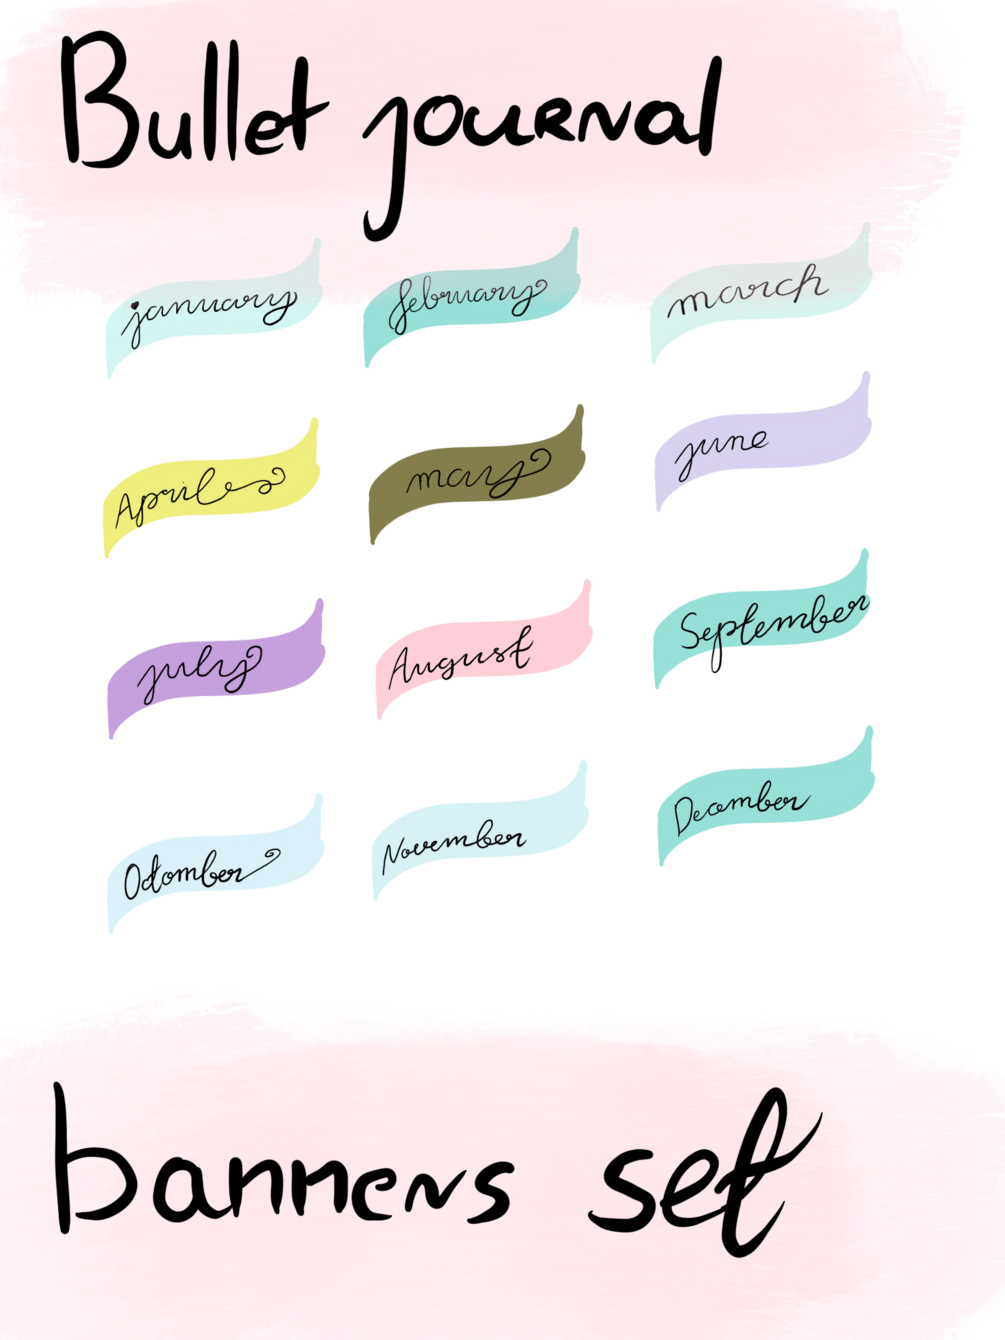 Bullet journal
january february march
April may june
july August September
Odomber November Decomber
banners set